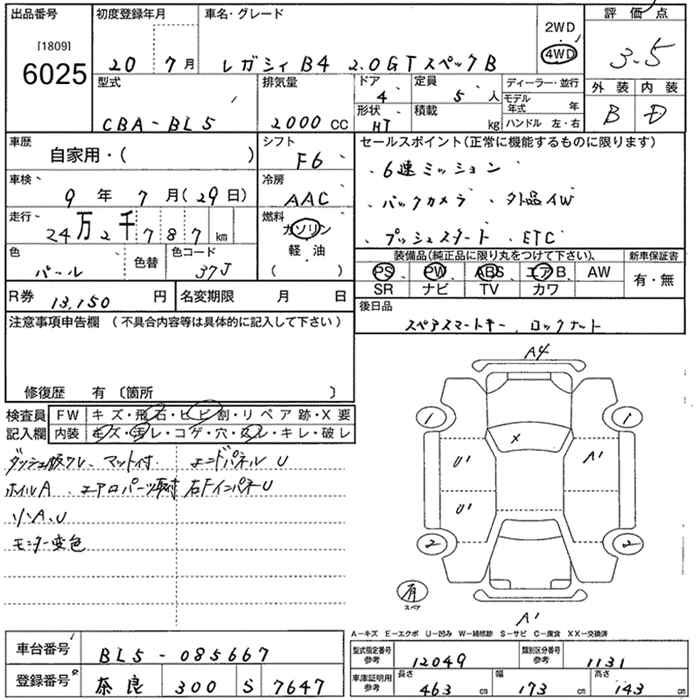 出品番号
[1809]
6025
初度登録年月
20 7月
車名・グレード
レガシィB4 2.0GTスペックB
2WD
4WD
評価点
3.5
外装 内装
B D
型式
CBA-BL5
排気量
2000 CC
ドア
4
定員
5 人
形状
HT
積載
kg
ディーラー・並行
モデル年式 年
ハンドル 左・右
車歴
自家用・( )
シフト
F6
セールスポイント(正常に機能するものに限ります)
、6速ミッション
、バックカメラ 、外品AW
、プッシュスタート 、ETC
車検
9年 7月(29日)
冷房
AAC
走行
24万2千787km
燃料
ガソリン
軽・油
( )
色
パール
色替
色コード
37J
装備品(純正品に限り丸をつけて下さい)、
PS PW ABS エアB AW
SR ナビ TV カワ
新車保証書
有・無
R券 13,150 円
名変期限 月 日
後日品
スペアスマートキー、ロックナット
注意事項申告欄 (不具合内容等は具体的に記入して下さい)
修復歴 有 〔箇所 〕
検査員記入欄
FW キズ・飛石・ヒビ割・リペア跡・X要
内装 キズ・汚レ・コゲ・穴・スレ・キレ・破レ
ダッシュ板ワレ、マット付 エンドパネルU
ホイルA、エアロパーツ取付 右FインパネU
ソトA、U
モニター変色
A4
1
1
X
U'
A'
U'
2
2
有
スペア
A'
A-キズ E-エクボ U-凹み W-補修跡 S-サビ C-腐食 XX-交換済
車台番号 BL5-085667
登録番号 奈良 300 S 7647
型式指定番号参考 12049
類別区分番号参考 1131
車庫証明用参考
長さ 463 cm
幅 173 cm
高さ 143 cm